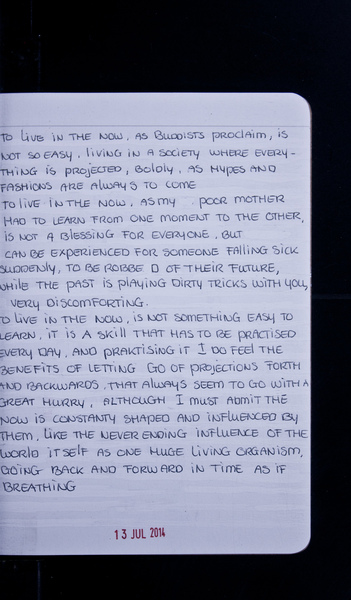 TO LIVE IN THE NOW, AS BUDDISTS PROCLAIM, IS
NOT SO EASY. LIVING IN A SOCIETY WHERE EVERY-
THING IS PROJECTED, BOLDLY, AS HYPES AND
FASHIONS ARE ALWAYS TO COME
TO LIVE IN THE NOW, AS MY POOR MOTHER
HAD TO LEARN FROM ONE MOMENT TO THE OTHER,
IS NOT A BLESSING FOR EVERYONE. BUT
CAN BE EXPERIENCED FOR SOMEONE FALLING SICK
SUDDENLY, TO BE ROBBE D OF THEIR FUTURE,
WHILE THE PAST IS PLAYING DIRTY TRICKS WITH YOU,
VERY DISCOMFORTING.
TO LIVE IN THE NOW, IS NOT SOMETHING EASY TO
LEARN. IT IS A SKILL THAT HAS TO BE PRACTISED
EVERY DAY, AND PRAKTISING IT I DO FEEL THE
BENEFITS OF LETTING GO OF PROJECTIONS FORTH
AND BACKWARDS. THAT ALWAYS SEEM TO GO WITH A
GREAT HURRY, ALTHOUGH I MUST ADMIT THE
NOW IS CONSTANTY SHAPED AND INFLUENCED BY
THEM, LIKE THE NEVER ENDING INFLUENCE OF THE
WORLD ITSELF AS ONE HUGE LIVING ORGANISM,
GOING BACK AND FORWARD IN TIME AS IF
BREATHING
13 JUL 2014